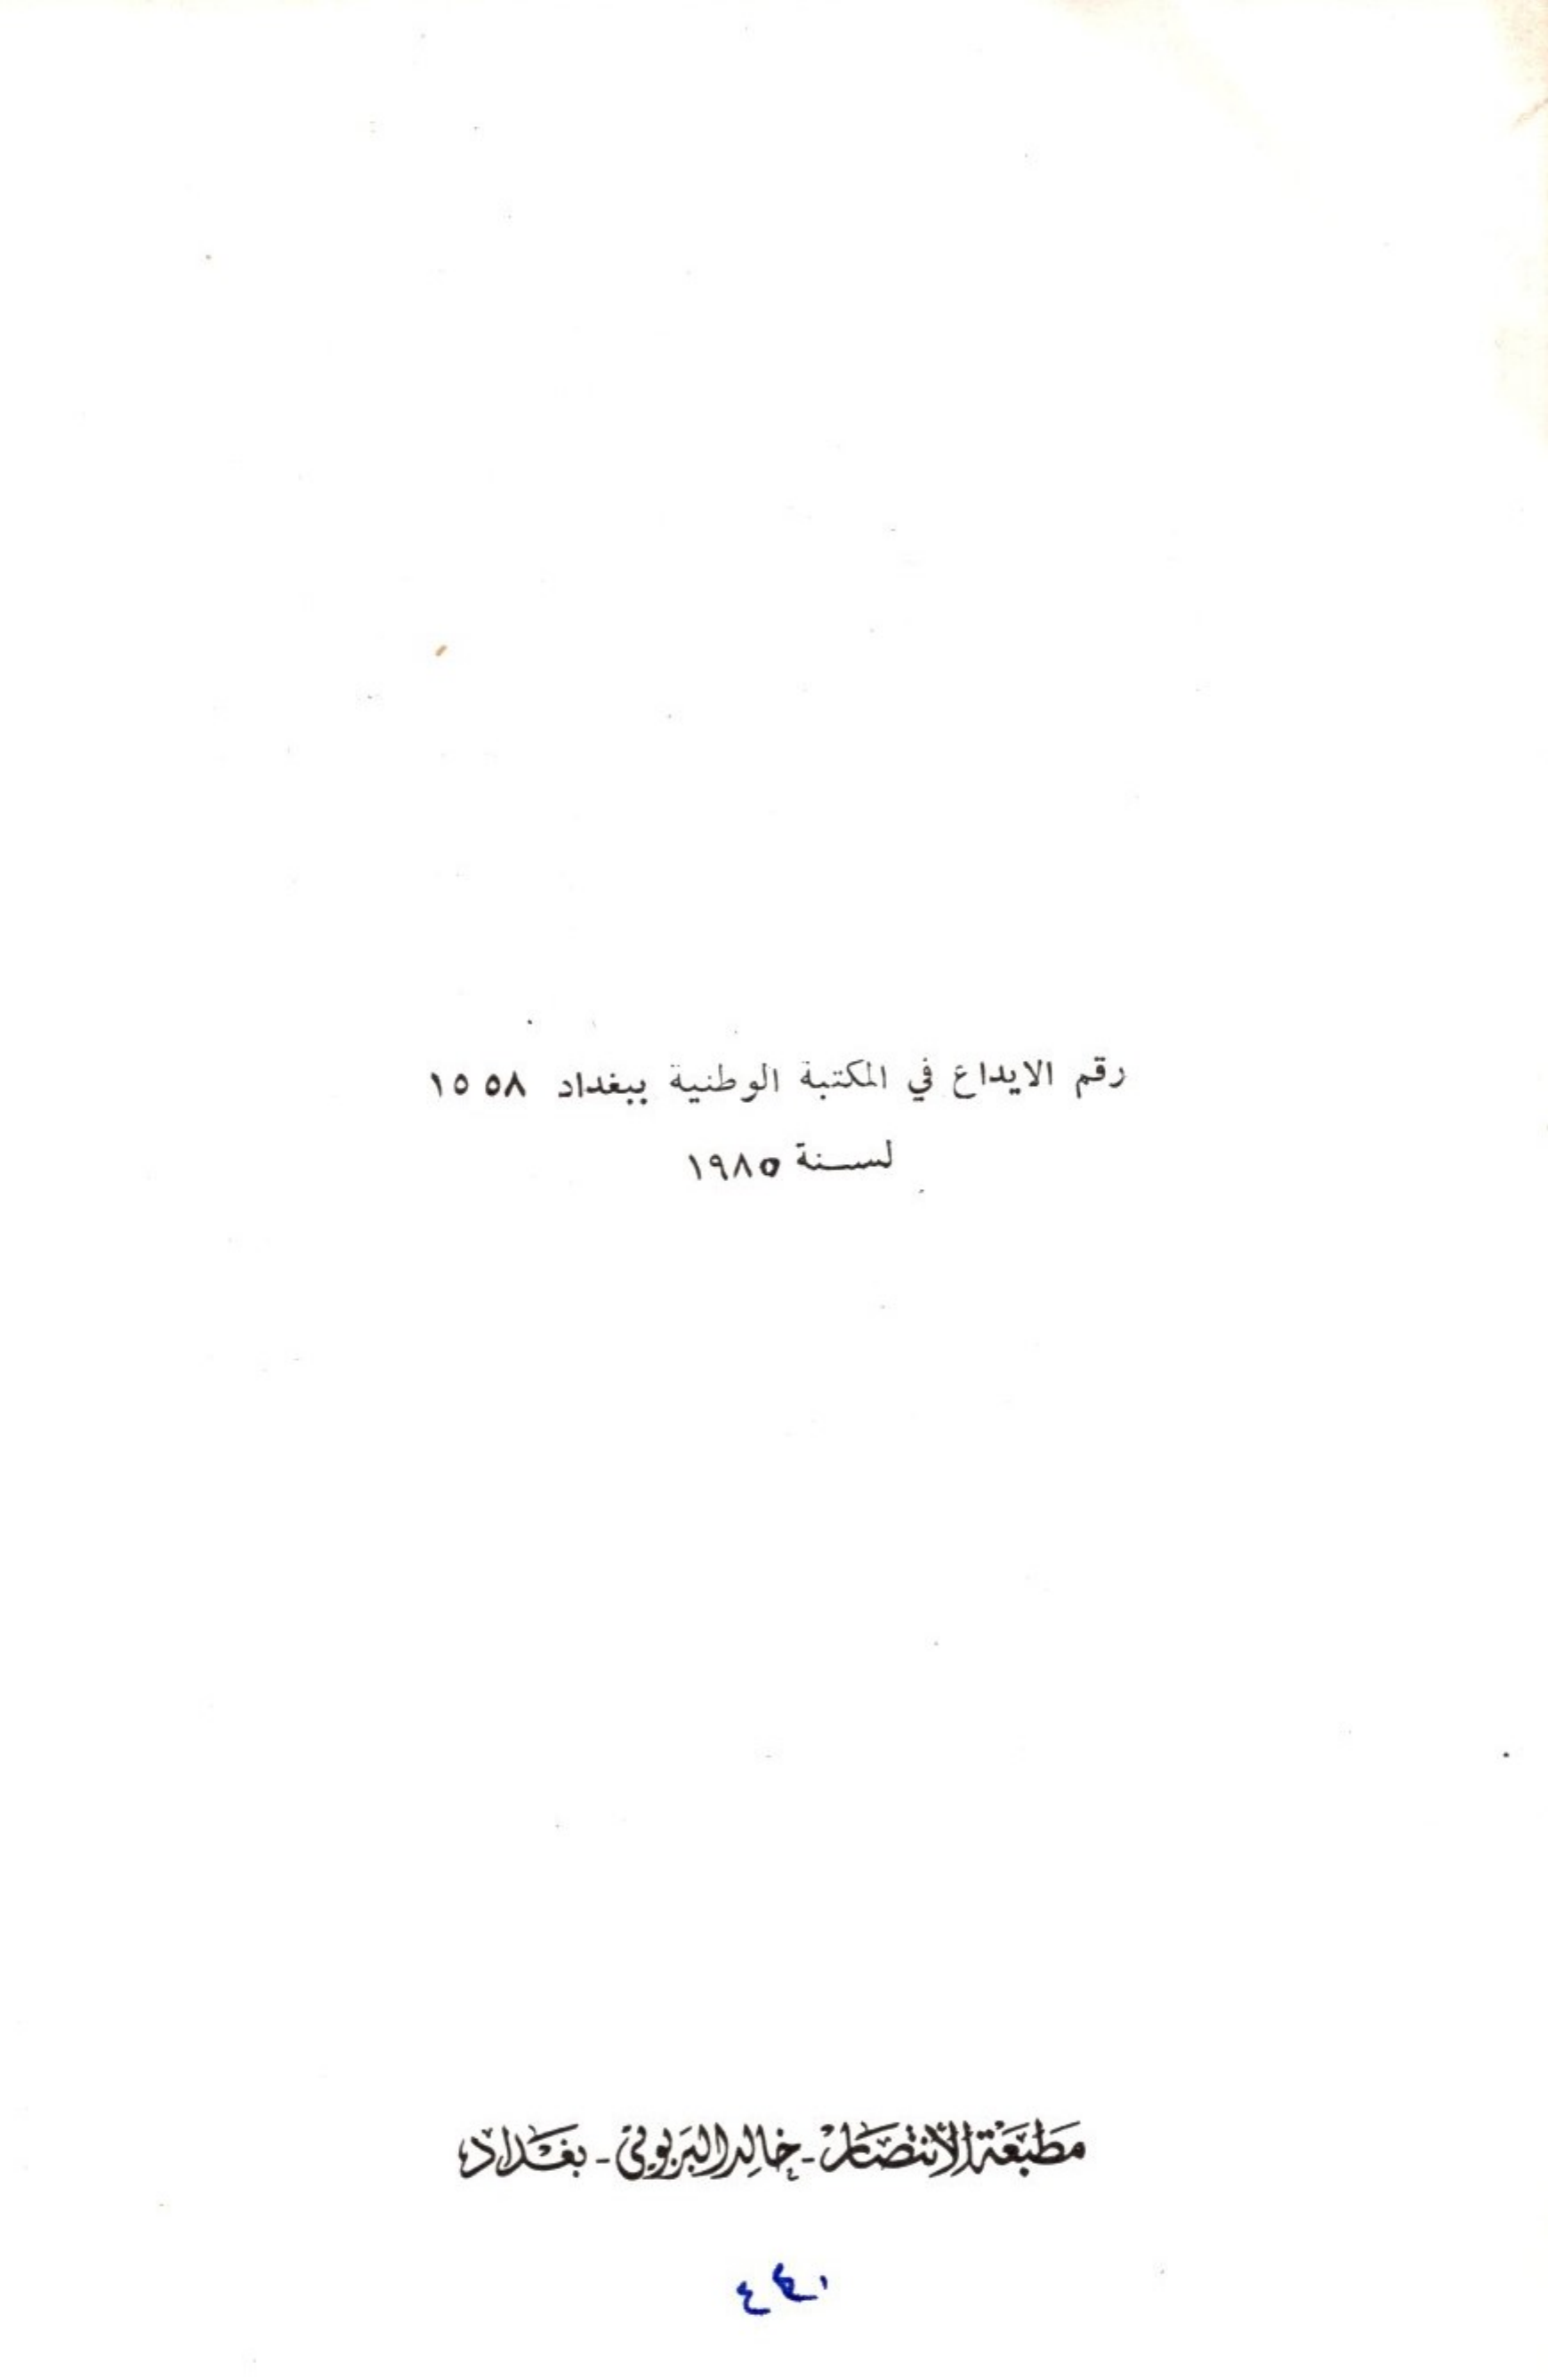 رقم الايداع في المكتبة الوطنية ببغداد ١٥٥٨
لسنة ١٩٨٥
مطبعة الانتصار - خالد البربوتي - بغداد